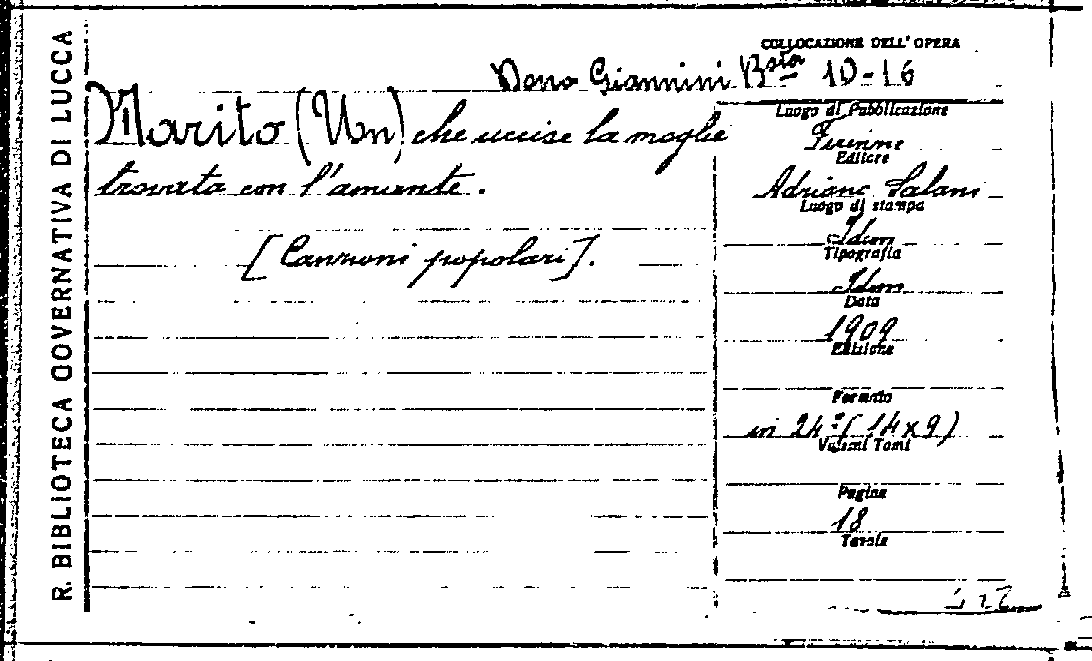 R. BIBLIOTECA GOVERNATIVA DI LUCCA
COLLOCAZIONE DELL' OPERA
Dono Giannini Bsta 10-16
Marito (Un) che uccise la moglie
trovata con l'amante.
[Canzoni popolari].
Luogo di Pubblicazione
Firenze
Editore
Adriano Salani
Luogo di stampa
Idem
Tipografia
Idem
Data
1909
Edizione
Formato
in 24° (14x9)
Volumi Tomi
Pagine
18
Tavole